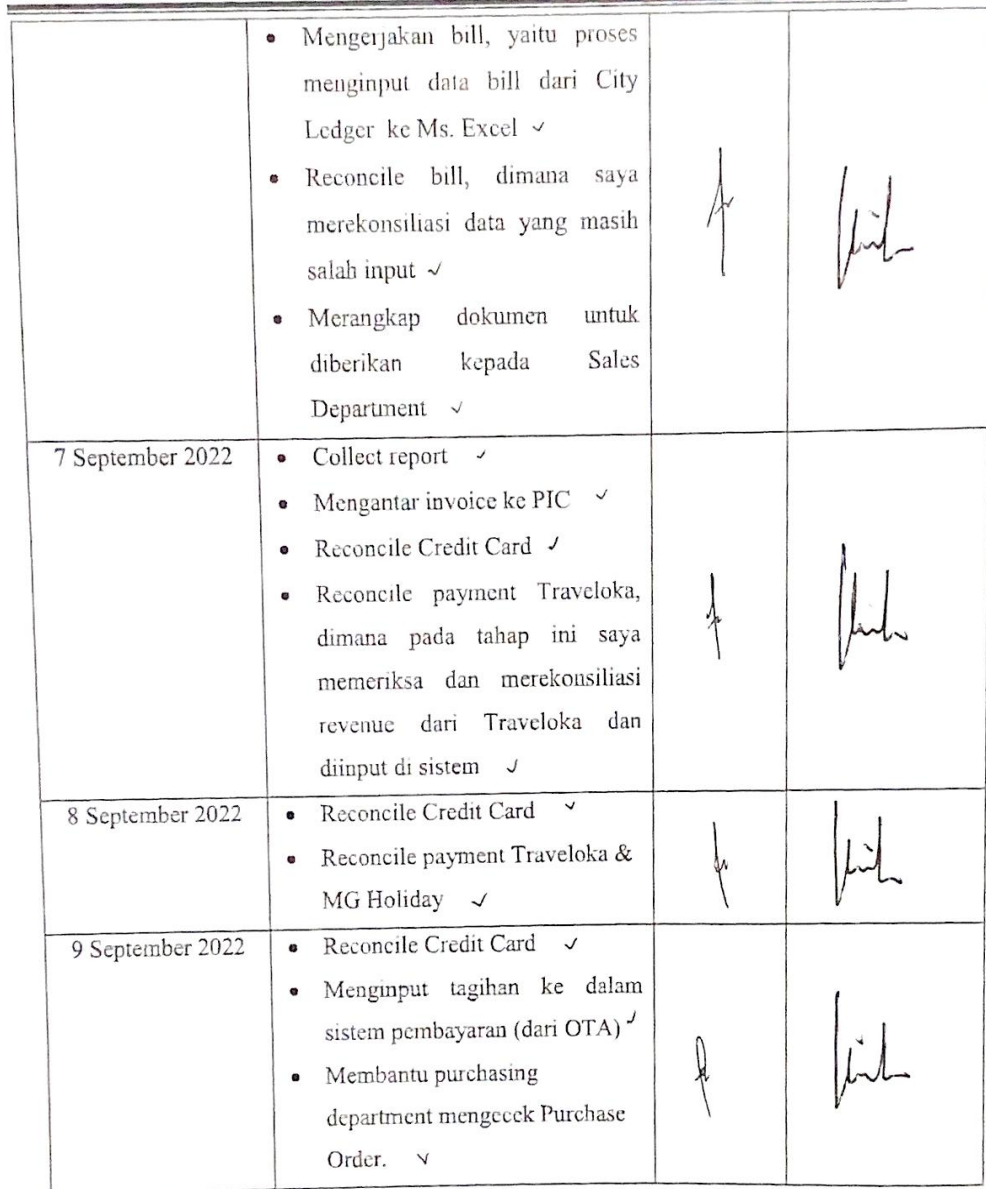 • Mengerjakan bill, yaitu proses
menginput data bill dari City
Ledger ke Ms. Excel ✓
• Reconcile bill, dimana saya
merekonsiliasi data yang masih
salah input ✓
• Merangkap dokumen untuk
diberikan kepada Sales
Department ✓
7 September 2022
• Collect report ✓
• Mengantar invoice ke PIC ✓
• Reconcile Credit Card ✓
• Reconcile payment Traveloka,
dimana pada tahap ini saya
memeriksa dan merekonsiliasi
revenue dari Traveloka dan
diinput di sistem ✓
8 September 2022
• Reconcile Credit Card ✓
• Reconcile payment Traveloka &
MG Holiday ✓
9 September 2022
• Reconcile Credit Card ✓
• Menginput tagihan ke dalam
sistem pembayaran (dari OTA) ✓
• Membantu purchasing
department mengecek Purchase
Order. ✓